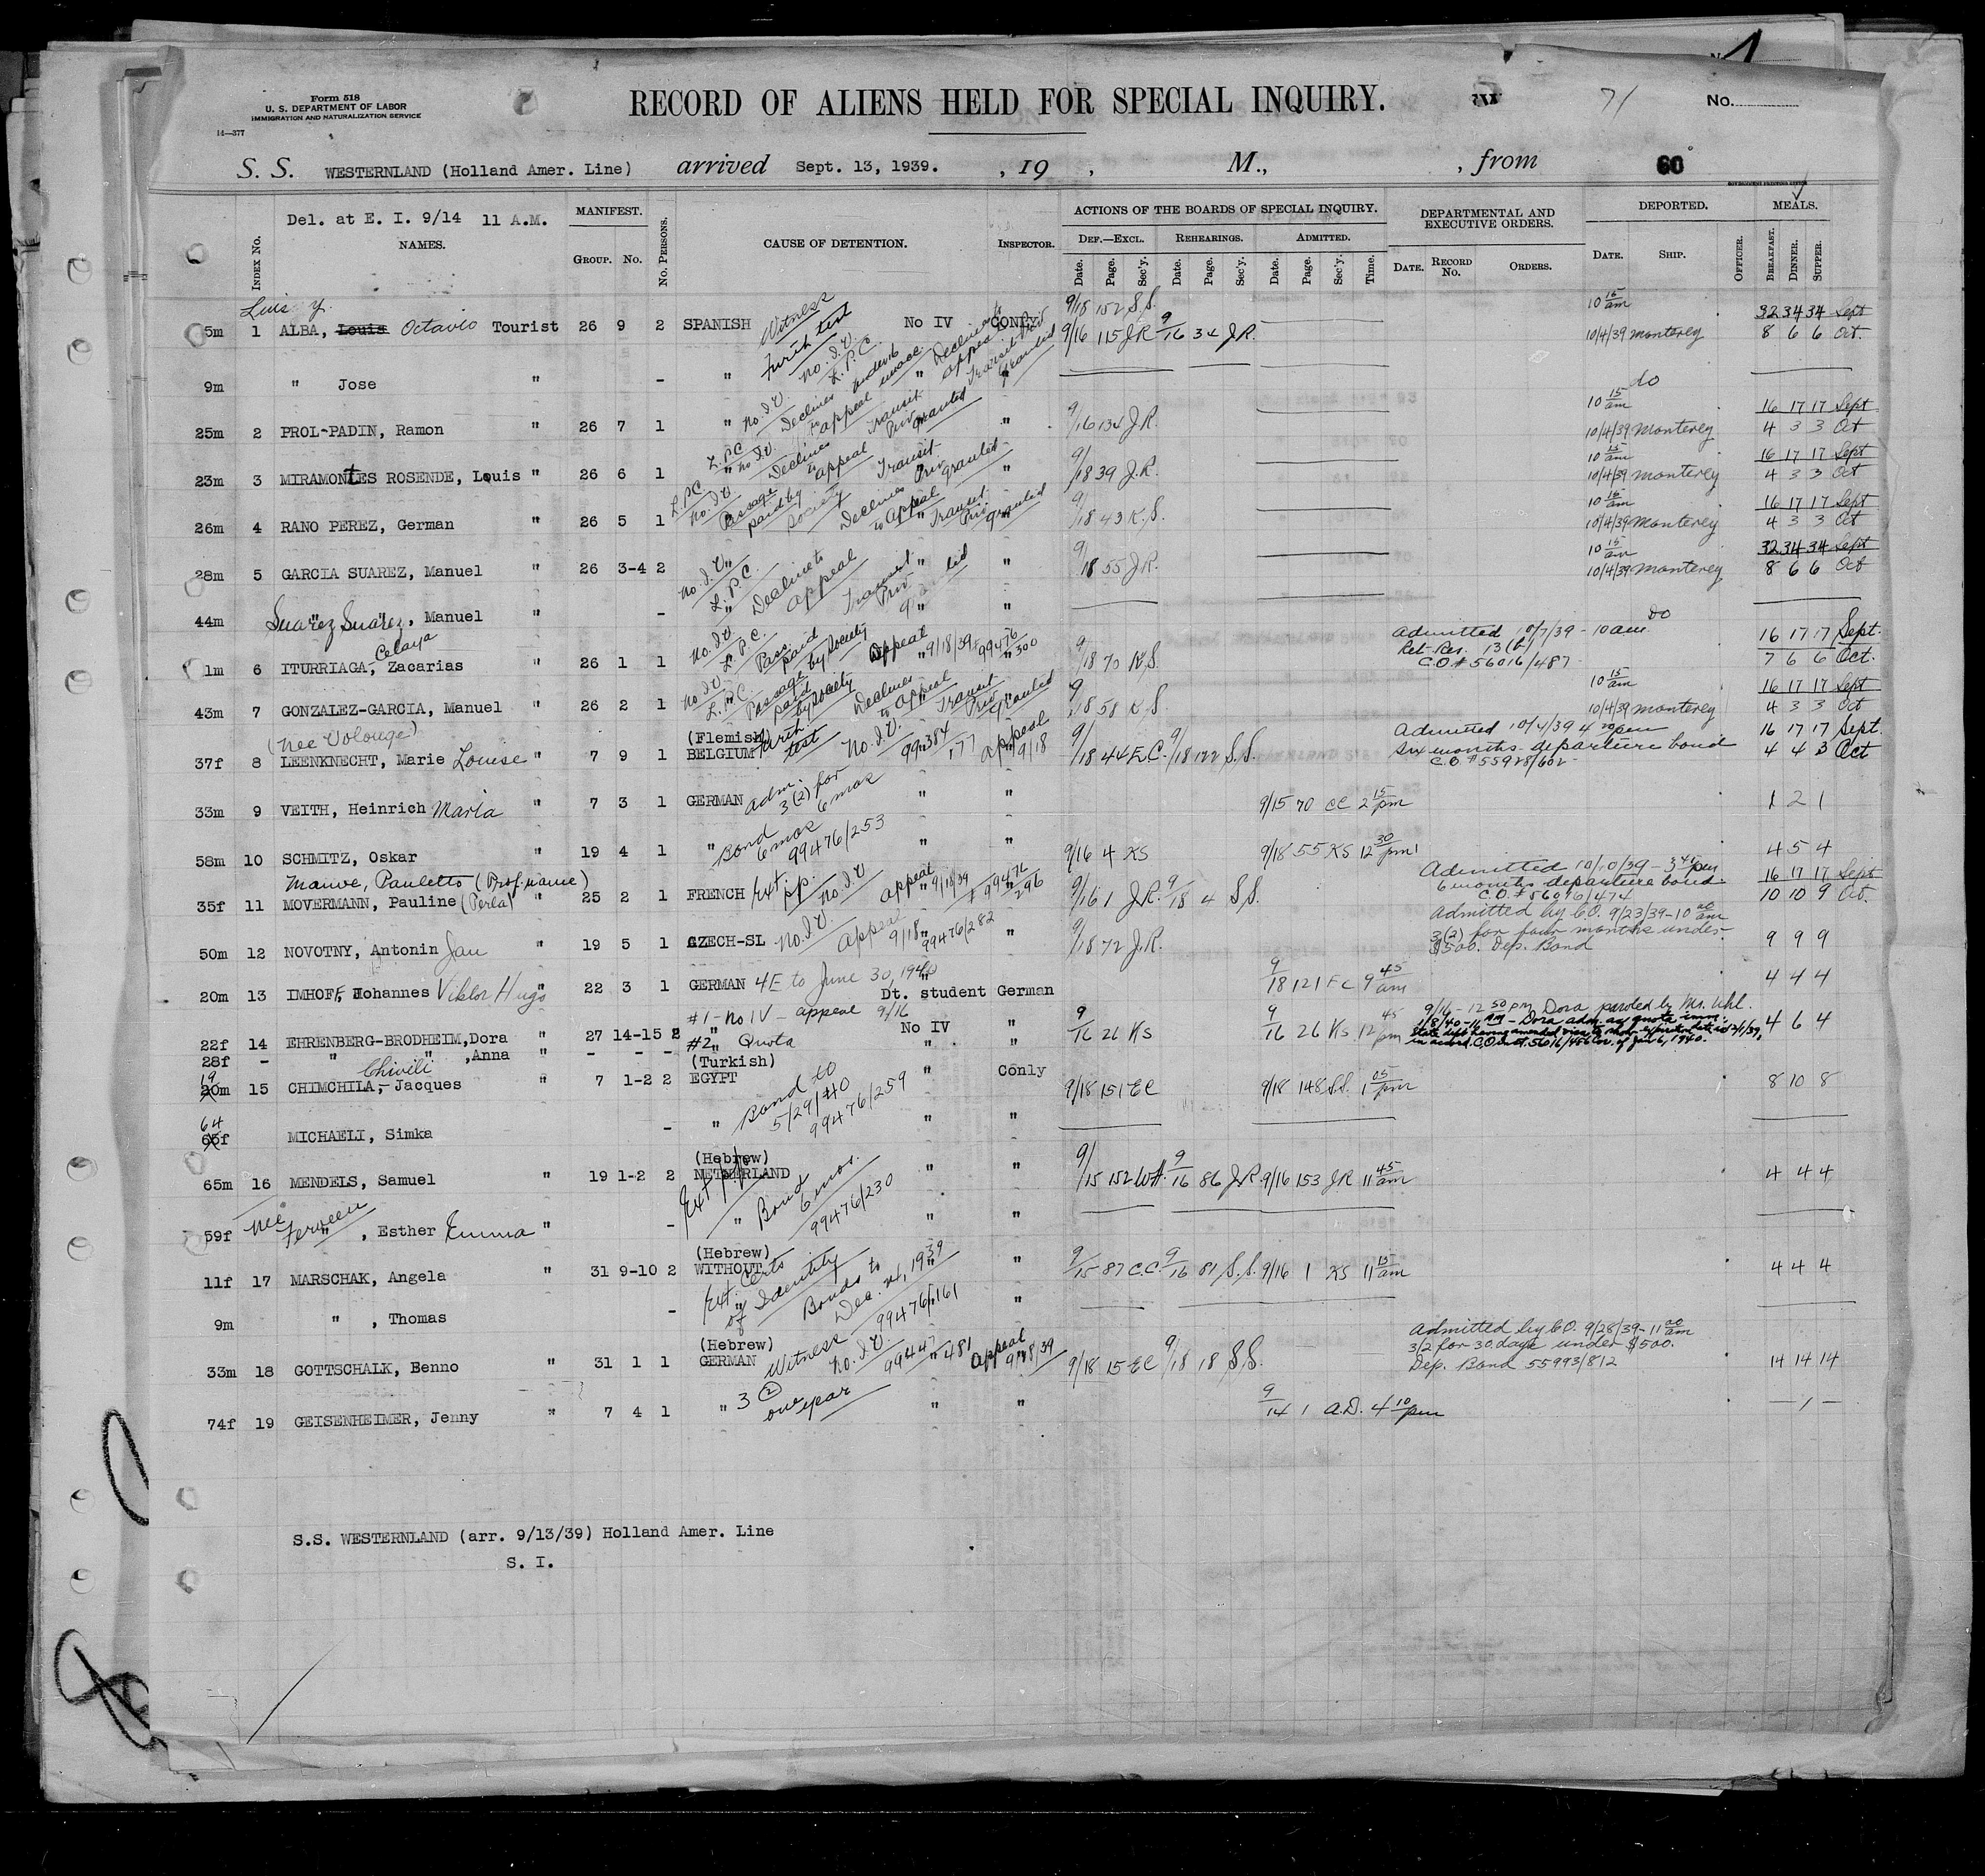 Form 518
U. S. DEPARTMENT OF LABOR
IMMIGRATION AND NATURALIZATION SERVICE
14—377
RECORD OF ALIENS HELD FOR SPECIAL INQUIRY.
71
No.
S. S. WESTERNLAND (Holland Amer. Line) arrived Sept. 13, 1939. , 19 , M., , from 60
Del. at E. I. 9/14 11 A.M.
INDEX No. NAMES. MANIFEST. GROUP. No. No. PERSONS. CAUSE OF DETENTION. INSPECTOR.
ACTIONS OF THE BOARDS OF SPECIAL INQUIRY.
DEF.—EXCL. REHEARINGS. ADMITTED.
Date. Page. Sec'y. Date. Page. Sec'y. Date. Page. Sec'y. Time.
DEPARTMENTAL AND EXECUTIVE ORDERS.
DATE. RECORD No. ORDERS.
DEPORTED.
DATE. SHIP. OFFICER.
MEALS.
BREAKFAST. DINNER. SUPPER.
Luis y
9/18 152 S.S. 10 15 am 32 34 34 Sept
5m 1 ALBA, Louis Octavio Tourist 26 9 2 SPANISH Witness No IV CONLY 9/16 115 JR 9/16 34 J.R. 10/4/39 Monterey 8 6 6 Oct.
9m " Jose " - " " " do
10 15 am 16 17 17 Sept
25m 2 PROL-PADIN, Ramon " 26 7 1 " No. I.V. Declines to appeal Transit Priv granted " 9/16 134 J.R. 10/4/39 Monterey 4 3 3 Oct
10 15 am 16 17 17 Sept
23m 3 MIRAMONTES ROSENDE, Louis " 26 6 1 L.P.C. " no I.V. Declines to appeal Transit Priv granted " 9/18 39 J.R. 10/4/39 Monterey 4 3 3 Oct
10 15 am 16 17 17 Sept
26m 4 RANO PEREZ, German " 26 5 1 L.P.C. no. I.V. Passage paid by Society Declines to Appeal " Transit Priv granted " 9/18 43 K.S. 10/4/39 Monterey 4 3 3 Oct
10 15 am 32 34 34 Sept
28m 5 GARCIA SUAREZ, Manuel " 26 3-4 2 no. I.V. L.P.C. Declines to appeal Transit Priv " " 9/18 55 J.R. 10/4/39 Monterey 8 6 6 Oct
44m Suarez Suarez, Manuel " - " " " Do
Celaya
1m 6 ITURRIAGA, Zacarias " 26 1 1 no. I.V. L.P.C. Pass. paid by Society Appeal 9/18/39 99476/300 9/18 70 K.S. Admitted 10/7/39 - 10 am. 16 17 17 Sept.
C.O.# 56016/487 7 6 6 Oct.
10 15 am 16 17 17 Sept
43m 7 GONZALEZ-GARCIA, Manuel " 26 2 1 no. I.V. L.P.C. Passage paid by society Declines to appeal Transit Priv granted 9/18 58 K.S. 10/4/39 Monterey 4 3 3 Oct
(nee Volouge)
37f 8 LEENKNECHT, Marie Louise " 7 9 1 (Flemish) BELGIUM test No. I.V. 99384/177 appeal 9/18 9/18 44 E.C. 9/18 122 S.S. Admitted 10/4/39 4 pm 16 17 17 Sept.
six months departure bond 4 4 3 Oct
C.O.# 55928/602
33m 9 VEITH, Heinrich Maria " 7 3 1 GERMAN adm. for 3(2) 6 mos " " 9/15 70 CC 2 15 pm 1 2 1
58m 10 SCHMITZ, Oskar " 19 4 1 " Bond 6 mos 99476/253 " " 9/16 4 KS 9/18 55 KS 12 30 pm 4 5 4
Manve, Pauletto (Prof. name)
35f 11 MOVERMANN, Pauline (Perla) " 25 2 1 FRENCH Ext. p.p. no. I.V. appeal 9/18/39 99476/296 9/16 1 J.R. 9/18 4 S.S. Admitted 10/10/39 - 3 40 pm 16 17 17 Sept
6 months departure bond. 10 10 9 Oct.
C.O.# 56016/474
50m 12 NOVOTNY, Antonin Jan " 19 5 1 CZECH-SL No. I.V. Appeal 9/18 99476/282 " 9/18 72 J.R. Admitted by CO. 9/23/39-10 am 9 9 9
3(2) for four months under
$500. Dep. Bond
20m 13 IMHOFF, Johannes Viktor Hugo " 22 3 1 GERMAN 4E to June 30, 1940 Dt. student German 9/18 121 FC 9 45 am 4 4 4
#1 - No IV - appeal 9/16
22f 14 EHRENBERG-BRODHEIM, Dora " 27 14-15 2 " No IV " 9/16 26 KS 9/16 26 KS 12 45 pm 4 6 4
9/16 - 12 50 pm Dora paroled by Mr. Uhl.
1/8/40 - Dora adm. as quota imm.
28f - " " , Anna " - - - #2 " Quota " "
Chivili
19 20m 15 CHIMCHILA, Jacques " 7 1-2 2 (Turkish) EGYPT Bond to 5/29/40 99476/259 " Conly 9/18 151 EC 9/18 148 S.S. 1 05 pm 8 10 8
64 65f MICHAELI, Simka - " " "
65m 16 MENDELS, Samuel " 19 1-2 2 (Hebrew) NETHERLAND Ext p/p " " 9/15 152 WH. 9/16 86 J.R. 9/16 153 J.R. 11 45 am 4 4 4
nee
59f " , Esther Emma " - " Bond 6 mos. 99476/230 " "
11f 17 MARSCHAK, Angela " 31 9-10 2 (Hebrew) WITHOUT Ext. Certs of Identity " 9/15 87 C.C. 9/16 81 S.S. 9/16 1 KS 11 15 am 4 4 4
9m " , Thomas - " Bonds to Dec. 31, 1939 99476/161 "
33m 18 GOTTSCHALK, Benno " 31 1 1 (Hebrew) GERMAN Witness No. I.V. 99447/481 Appeal 9/18/39 9/18 15 EC 9/18 18 S.S. Admitted by CO. 9/28/39-11 am 14 14 14
3/2 for 30 days under $500.
Dep. Bond 55993/812
74f 19 GEISENHEIMER, Jenny " 7 4 1 " 3 (2) one year " " 9/14 1 A.D. 4 10 pm — 1 —
S.S. WESTERNLAND (arr. 9/13/39) Holland Amer. Line
S. I.